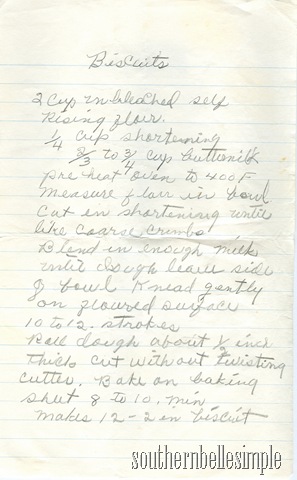 Biscuits
2 Cup unbleached self
Rising flour.
1/4 cup shortening
2/3 to 3/4 cup buttermilk
pre heat oven to 400 F
measure flair in bowl
Cut in shortening until
like coarse crumbs
Blend in enough milk
until dough leave side
of bowl Knead gently
on floured surface
10 to 12. strokes
Roll dough about ½ inch
thick cut without twisting
cutter. Bake on baking
sheet 8 to 10. min
makes 12 - 2 in biscuit
southernbellesimple